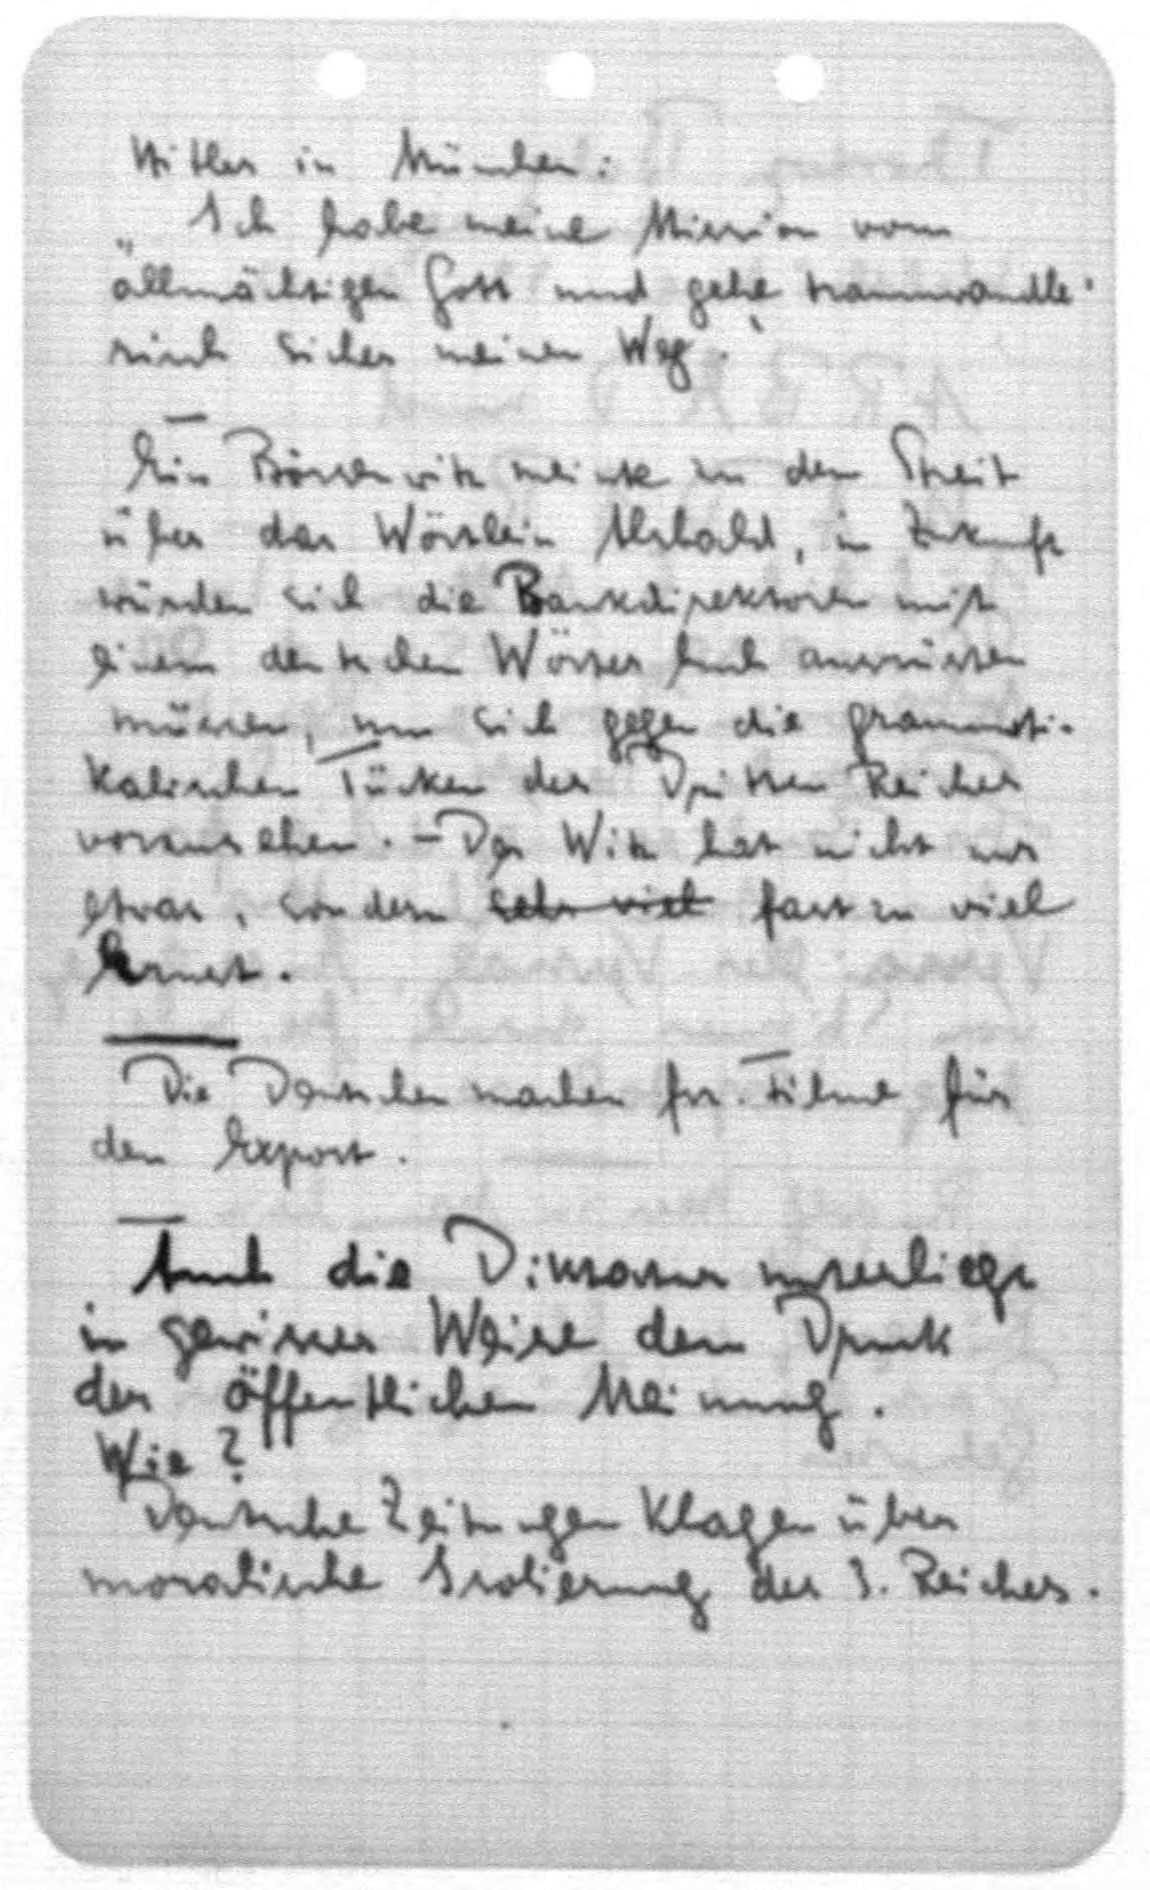 Hitler in München:
„Ich habe meine Mission vom
allmächtigen Gott und gehe traumwandle-
risch sicher meinen Weg.“
Ein Börsenwitz meinte zu dem Streit
über das Wörtlein Alsbald, in Zukunft
würden sich die Bankdirektoren mit
einem deutschen Wörterbuch ausrüsten
müssen, um sich gegen die grammati-
kalischen Tücken des Dritten Reiches
vorzusehen. – Der Witz hat nicht nur
etwas, sondern sehr viel fast zu viel
Ernst.
Die Deutschen machen frz. Filme für
den Export.
Auch die Diktatur unterliegt
in gewisser Weise dem Druck
der öffentlichen Meinung.
Wie?
Deutsche Zeitungen klagen über
moralische Isolierung des 3. Reiches.